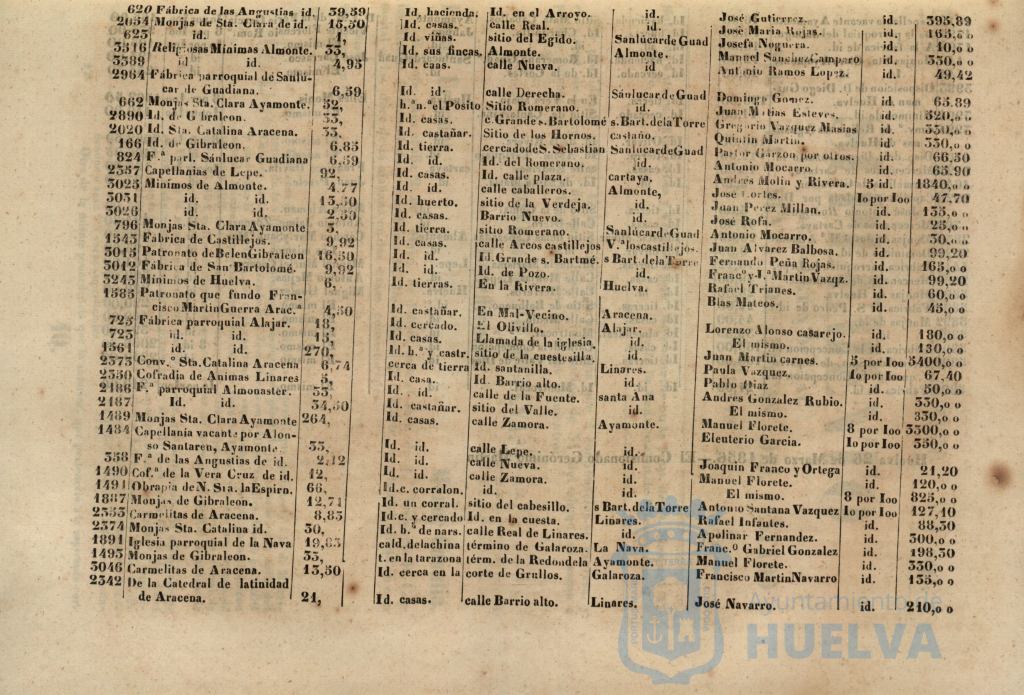 620 Fábrica de las Angustias id. 39,59 Id. hacienda. Id. en el Arroyo. id. José Gutierrez. id. 395,89
2054 Monjas de Sta. Clara de id. 15,50 Id. casas. calle Real. id. José Maria Rojas. id. 165,o o
623 id. 1, Id. viñas. sitio del Egido. Sanlúcar de Guad Josefa Noguera. id. 10,o o
3516 Religiosas Mínimas Almonte. 33, Id. sus fincas. Almonte. Almonte. Manuel Sanchez Camparo id. 330,o o
3589 id. id. 4,95 Id. caas. calle Nueva. id Antonio Ramos Lopez. id. 49,42
2964 Fábrica parroquial de Sanlú-
car de Guadiana. 6,59 Id. id. calle Derecha. Sánlucar de Guad Domingo Gomez. id. 65.89
662 Monjas Sta. Clara Ayamonte. 52, h.ª n.ª el Pósito Sitio Romerano. id. Juan Matias Esteves. id. 520,o o
2890 Id. de Gibraleon. 33, Id. casas. c. Grande s. Bartolomé s. Bart. de la Torre Gregorio Vazquez Masias id. 330,o o
2020 Id. Sta. Catalina Aracena. 33, Id. castañar. Sitio de los Hornos. castaño. Quintin Martin. id. 330,o o
166 Id. de Gibraleon. 6,85 Id. tierra. cercado de S. Sebastian Sanlúcar de Guad Pastor Garzon por otros. id. 66,50
824 F.ª parl. Sánlucar Guadiana 6,59 Id. id. Id. del Romerano. id. Antonio Mocarro. id. 65.90
2357 Capellanias de Lepe. 92, Id. casas. Id. calle plaza. cartaya. Andres Molin y Rivera. 5 id. 1840,o o
3025 Minimos de Almonte. 4.77 Id. id. calle caballeros. Almonte, José Cortes. Io por Ioo 47.70
3051 id. id. 13,50 Id. huerto. sitio de la Verdeja. id. Juan Perez Millan. id. 135,o o
3026 id. id. 2.50 Id. casas. Barrio Nuevo. id. José Rofa. id. 25,o o
796 Monjas Sta. Clara Ayamonte 3, Id. tierra. sitio Romerano. Sanlúcar de Guad Antonio Mocarro. id. 30,o o
1543 Fábrica de Castillejos. 9,92 Id. casas. calle Arcos castillejos V.ª los castillejos. Juan Alvarez Balbosa. id. 99,20
3015 Patronato de Belen Gibraleon 16,50 Id. id. Id. Grande s. Bartmé. s Bart. de la Torre Fernando Peña Rojas. id. 165,o o
3012 Fábrica de San Bartolomé. 9,92 Id. id. Id. de Pozo. id. Franc.º y J.ª Martin Vazqz. id. 99,20
3243 Mínimos de Huelva. 6, Id. tierras. En la Rivera. Huelva. Rafael Trianes. id. 60,o o
1585 Patronato que fundo Fran-
cisco Martin Guerra Arac.ª 4,50 Id. castañar. En Mal-Vecino. Aracena. Blas Mateos. id. 45,o o
725 Fábrica parroquial Alajar. 18, Id. cercado. El Olivillo. Alajar. Lorenzo Alonso casarejo. id. 180,o o
723 id. id. 15, Id. casas. Llamada de la iglesia. id. El mismo. id. 150,o o
1561 id. id. 270, Id. h.ª y castr. sitio de la cuestesilla. id. Juan Martin carnes. 5 por Ioo 5400,o o
2373 Conv.º Sta. Catalina Aracena 6,74 cerca de tierra Id. santanilla. Linares. Paula Vazquez. Io por Ioo 67,40
2350 Cofradia de Animas Linares 5, Id. casa. Id. Barrio alto. id. Pablo Diaz id. 50,o o
2186 F.ª parroquial Almonaster. 33, Id. id. calle de la Fuente. santa Ana Andres Gonzalez Rubio. id. 330,o o
2187 Id. id. 34,50 Id. castañar. sitio del Valle. id. El mismo. id. 330,o o
1489 Monjas Sta. Clara Ayamonte 264, Id. casas. calle Zamora. Ayamonte. Manuel Florete. 8 por Ioo 3300,o o
1484 Capellania vacante por Alon-
so Santaren, Ayamonte. 35, Id. id. calle Lepe. id. Eleuterio Garcia. Io por Ioo 350,o o
358 F.ª de las Angustias de id. 2,12 Id. id. calle Nueva. id. Joaquin Franco y Ortega id. 21,20
1490 Cof.ª de la Vera Cruz de id. 12, Id. id. calle Zamora. id. Manuel Florete. id. 120,o o
1491 Obrapia de N. Sra. la Espirn. 66, Id. c. corralon. id. id. El mismo. 8 por Ioo 825,o o
1887 Monjas de Gibraleon. 12,71 Id. un corral. sitio del cabesillo. s Bart. de la Torre Antonio Santana Vazquez Io por Ioo 127,10
2353 Carmelitas de Aracena. 8,83 Id. c. y cercado Id. en la cuesta. Linares. Rafael Infantes. id. 88,30
2374 Monjas Sta. Catalina id. 30, Id. h.ª de nars. calle Real de Linares. id. Apolinar Fernandez. id. 300,o o
1891 Iglesia parroquial de la Nava 19,83 cald. de la china término de Galaroza. La Nava. Franc.º Gabriel Gonzalez id. 198,30
1495 Monjas de Gibraleon. 33, t. en la tarazona térm. de la Redondela Ayamonte. Manuel Florete. id. 330,o o
3046 Carmelitas de Aracena. 13,50 Id. cerca en la corte de Grullos. Galaroza. Francisco Martin Navarro id. 135,o o
2342 De la Catedral de latinidad
de Aracena. 21, Id. casas. calle Barrio alto. Linares. José Navarro. id. 210,o o
Ayuntamiento de
HUELVA